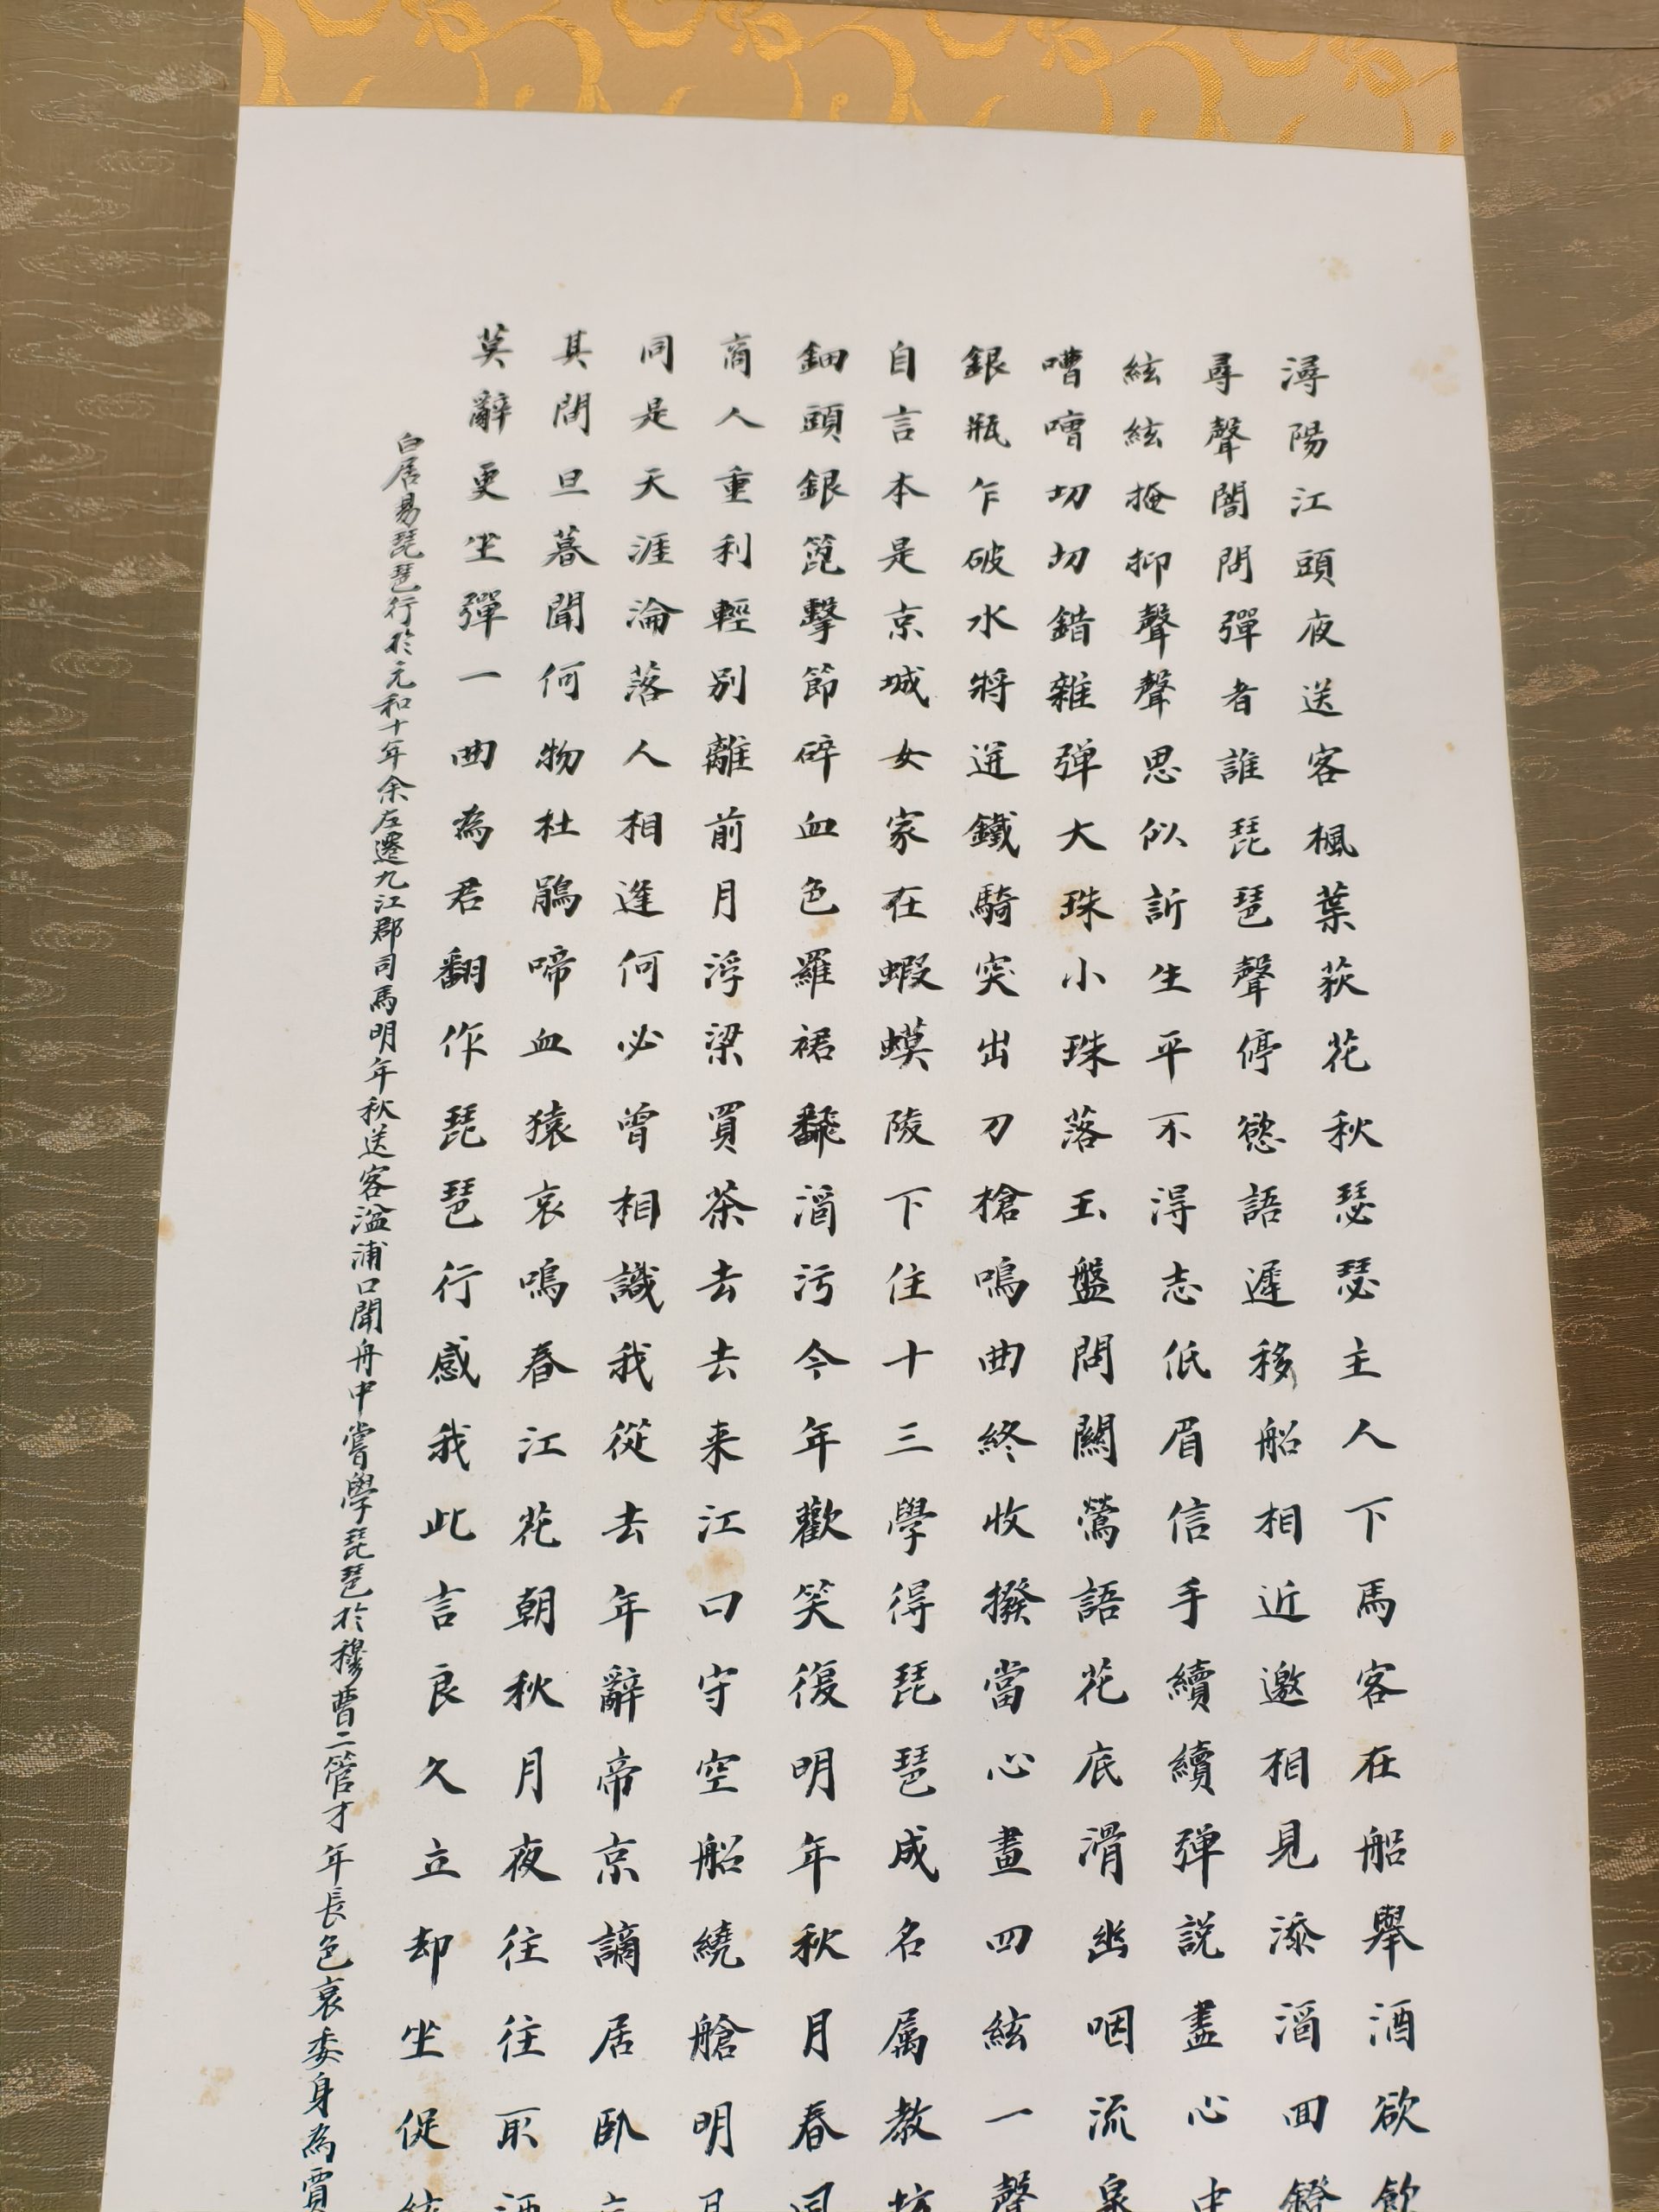 潯陽江頭夜送客楓葉荻花秋瑟瑟主人下馬客在船舉酒欲飲
尋聲闇問彈者誰琵琶聲停慾語遲移船相近邀相見添酒回鐙
絃絃掩抑聲聲思似訴生平不得志低眉信手續續弹說盡心中
嘈嘈切切錯雜弹大珠小珠落玉盤間關鶯語花底滑幽咽流泉
銀瓶乍破水將迸鐵騎突出刀槍鳴曲終收撥當心畫四絃一聲
自言本是京城女家在蝦蟆陵下住十三學得琵琶成名属教坊
鈿頭銀篦擊節碎血色羅裙飜酒污今年歡笑復明年秋月春
商人重利輕別離前月浮梁買茶去去来江口守空船繞艙明月
同是天涯淪落人相逢何必曾相識我從去年辭帝京謫居臥
其間旦暮聞何物杜鵑啼血猿哀鳴春江花朝秋月夜往往取酒
莫辭更坐彈一曲為君翻作琵琶行感我此言良久立却坐促絃
白居易琵琶行於元和十年余左遷九江郡司馬明年秋送客湓浦口聞舟中嘗學琵琶於穆曹二管才年長色衰委身為賈